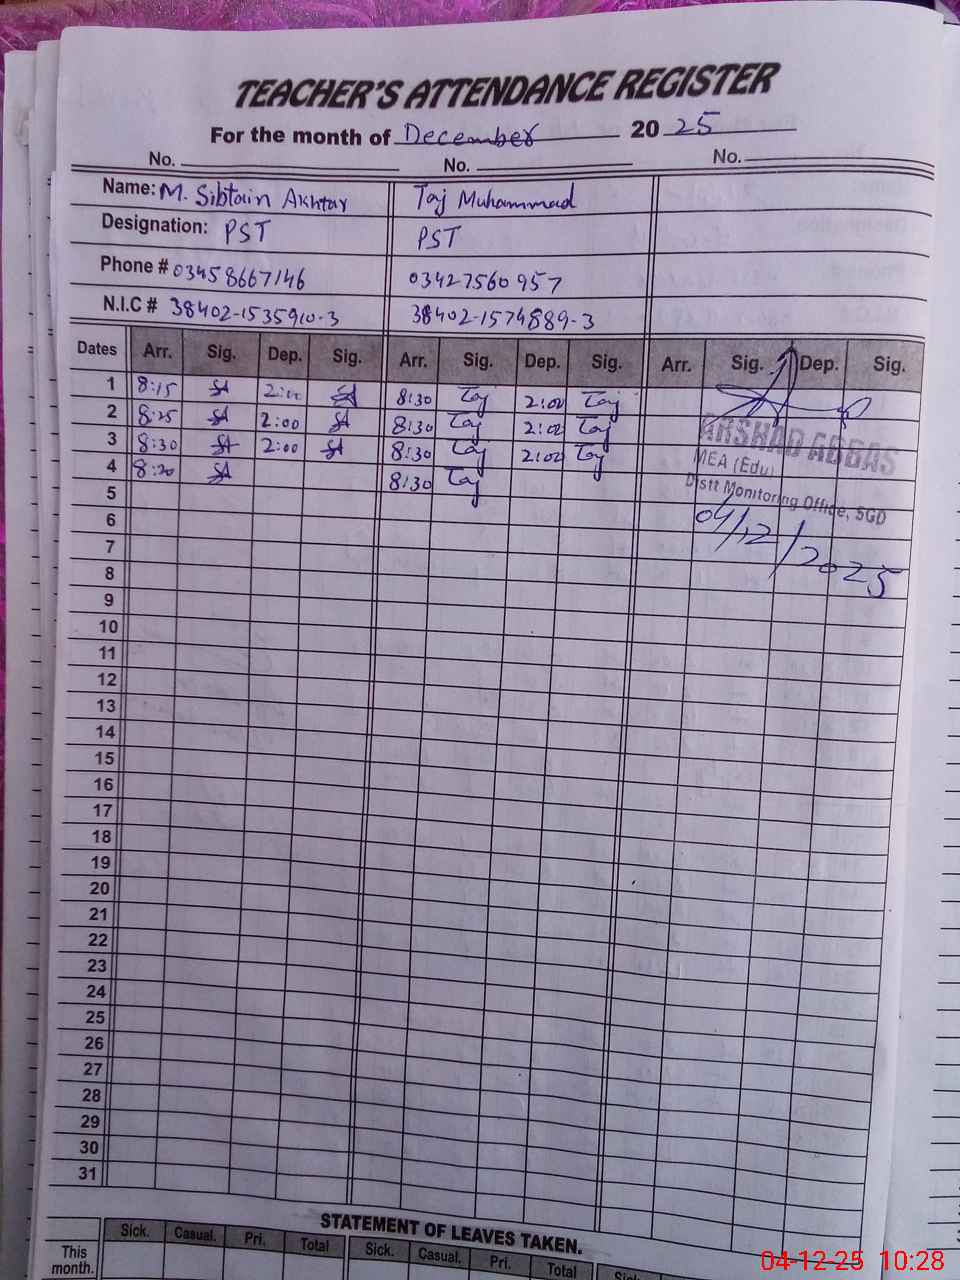 TEACHER'S ATTENDANCE REGISTER
For the month of December 2025
No. No. No.
Name: M. Sibtain Akhtar Taj Muhammad
Designation: PST PST
Phone # 03458667146 03427560957
N.I.C # 38402-1535910-3 38402-1574889-3
Dates Arr. Sig. Dep. Sig. Arr. Sig. Dep. Sig. Arr. Sig. Dep. Sig.
1 8:15 2:00 8:30 Taj 2:00 Taj
2 8:25 2:00 8:30 Taj 2:00 Taj
3 8:30 2:00 8:30 Taj 2:00 Taj
4 8:20 8:30 Taj
ARSHAD ABBAS
MEA (Edu)
Distt Monitoring Office, SGD
04/12/2025
5
6
7
8
9
10
11
12
13
14
15
16
17
18
19
20
21
22
23
24
25
26
27
28
29
30
31
STATEMENT OF LEAVES TAKEN.
Sick. Casual. Pri. Total Sick. Casual. Pri. Total Sick. Casual.
This month.
04-12-25 10:28